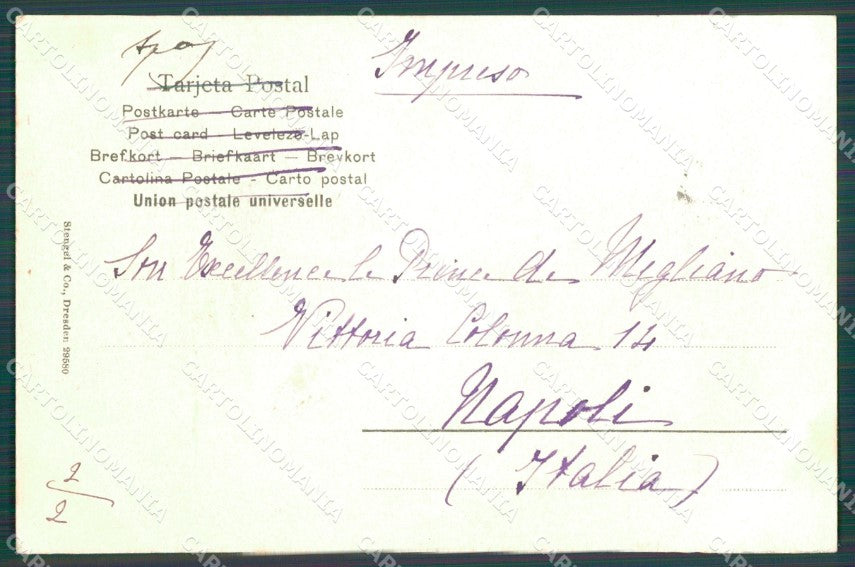 Impreso
Tarjeta Postal
Postkarte - Carte Postale
Post card - Levelezo-Lap
Brefkort - Briefkaart - Brevkort
Cartolina Postale - Carto postal
Union postale universelle
Son Excellence le Prince de Migliano
Vittoria Colonna 14
Napoli
(Italia)
Stengel & Co., Dresden 29580
2/2
CARTOLINOMANIA